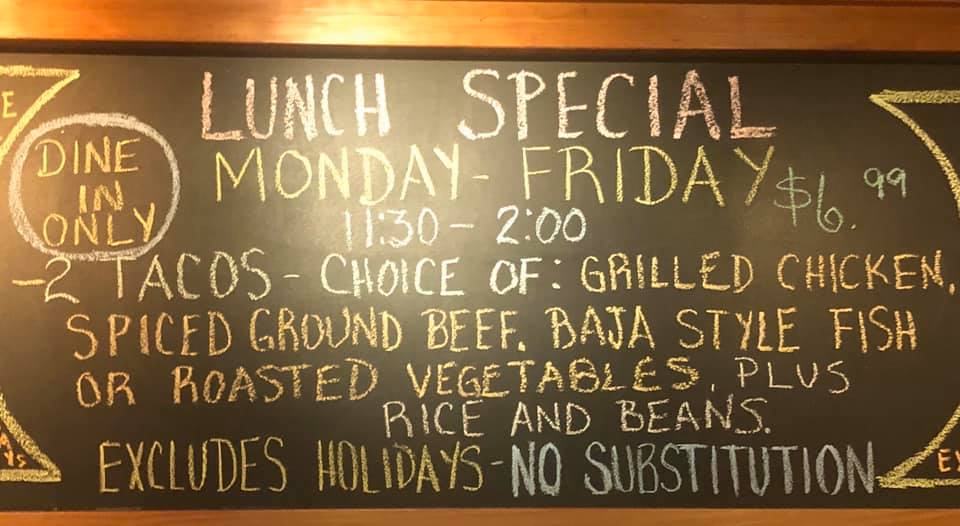 LUNCH SPECIAL
DINE
IN
ONLY
MONDAY - FRIDAY $6.99
11:30 - 2:00
-2 TACOS - CHOICE OF: GRILLED CHICKEN,
SPICED GROUND BEEF. BAJA STYLE FISH
OR ROASTED VEGETABLES. PLUS
RICE AND BEANS.
EXCLUDES HOLIDAYS - NO SUBSTITUTION